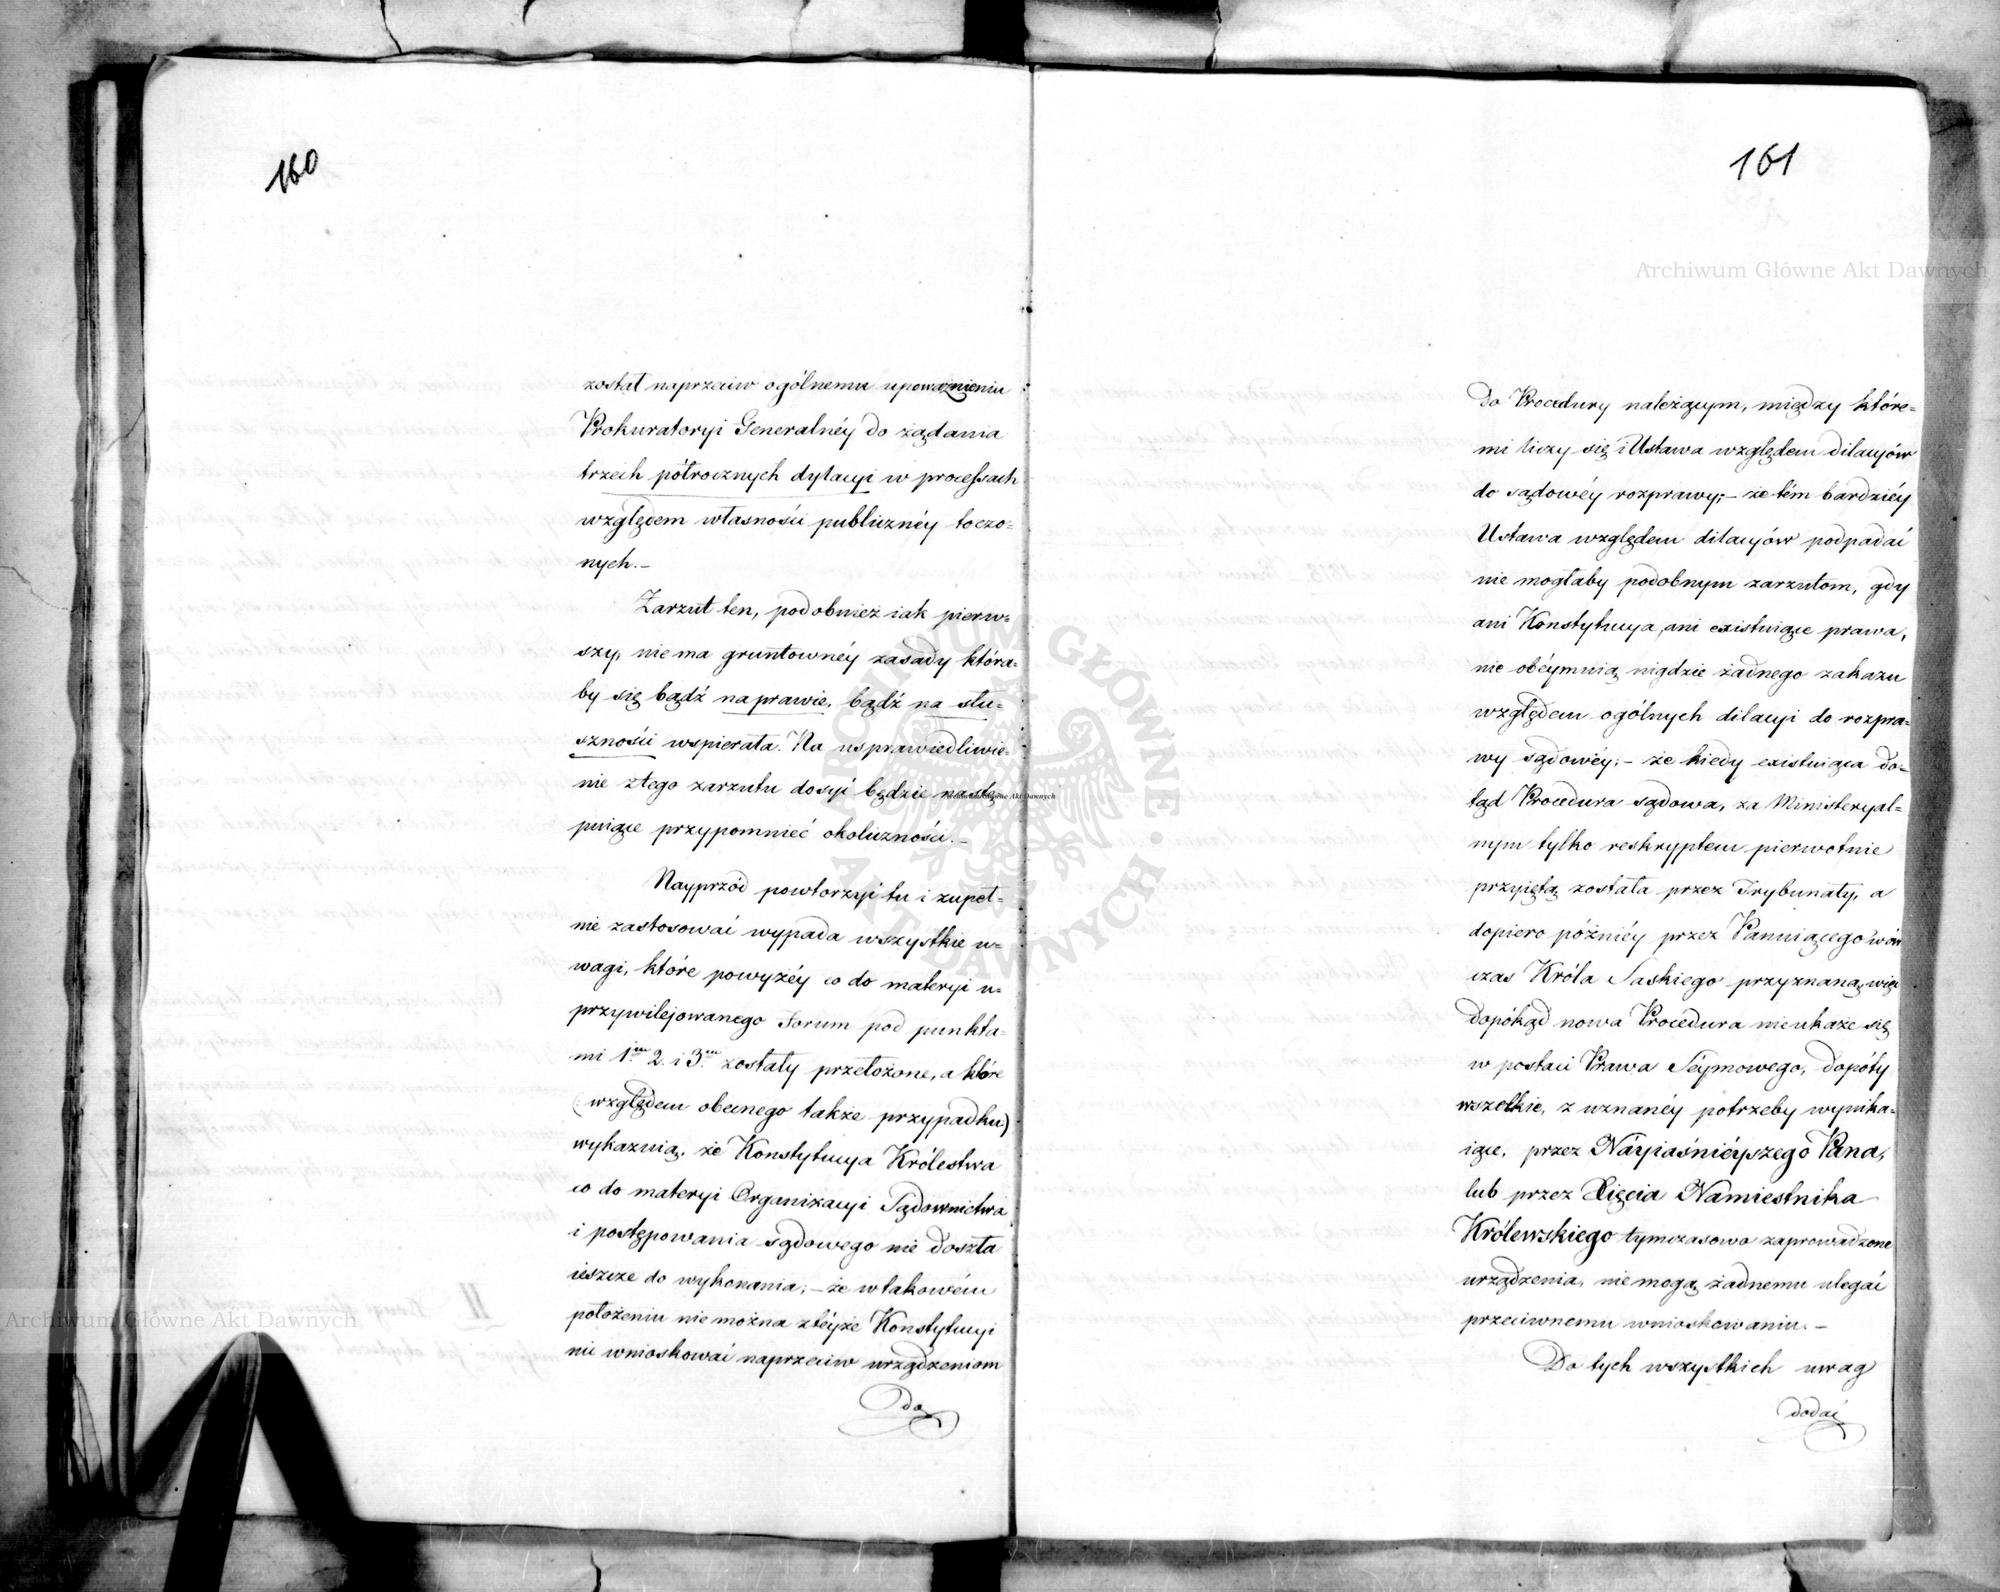 160
został naprzeciw ogólnemu upoważnieniu
Prokuratoryi Generalnéy do żądania
trzech półrocznych dylacyi w processach
względem własności publicznéy toczo=
nych.—
Zarzut ten, podobnież iak pierw=
szy, nie ma gruntownéy zasady która=
by się bądź na prawie, bądź na słu=
szności wspierała. Na usprawiedliwie=
nie z tego zarzutu dosyć będzie nastę
puiące przypomnieć okoliczności.—
Nayprzód powtorzyć tu i zupeł=
nie zastosować wypada wszystkie u=
wagi, które powyżéy co do materyi u=
przywilejowanego Forum pod punkta=
mi 1m 2. i 3m zostały przełożone, a które
(: względem obecnego także przypadku:)
wykazuią, że Konstytucya Królestwa
co do materyi Organizacyi Sądownictwa
i postępowania sądowego nie doszła
ieszcze do wykonania; — że w takowém
położeniu nie można z téyże Konstytucyi
nic wnioskować naprzeciw urządzeniom
do
161
do Procedury należącym, między które=
mi liczy się i Ustawa względem dilacyów
do sądowéy rozprawy; — że tém bardziéy
Ustawa względem dilacyów podpadać
nie mogłaby podobnym zarzutom, gdy
ani Konstytucya, ani existuiące prawa,
nie obéymuią nigdzie żadnego zakazu
względem ogólnych dilacyi do rozpra=
wy sądowéy; — że kiedy existuiąca do=
tąd Procedura sądowa, za Ministeryal=
nym tylko reskryptem pierwotnie
przyiętą została przez Trybunały, a
dopiero późniéy przez Panuiącego wów
czas Króla Saskiego przyznaną, więc
dopókąd nowa Procedura nie ukaże się
w postaci Prawa Séymowego, dopóty
wszelkie, z uznanéy potrzeby wynika=
iące, przez Náyiaśniéyszego Pana,
lub przez Xięcia Namiestnika
Królewskiego tymczasowo zaprowadzone
urządzenia, nie mogą żadnemu ulegać
przeciwnemu wnioskowaniu.—
Do tych wszystkich uwag
dodać
Archiwum Główne Akt Dawnych
Archiwum Główne Akt Dawnych
Archiwum Główne Akt Dawnych
ARCHIWUM GŁÓWNE AKT DAWNYCH